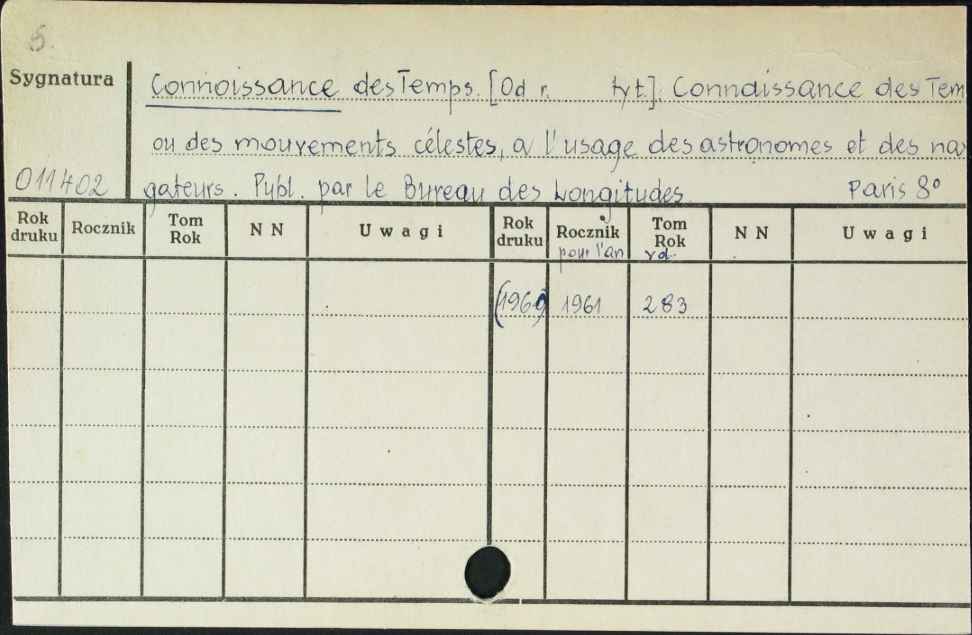 S.
Sygnatura
Connoissance des Temps. [Od r. tyt]. Connaissance des Tem
ou des mouvements célestes, a l'usage des astronomes et des na
011402
gateurs. Publ. par le Bureau des Longitudes. Paris 8º
Rok druku Rocznik Tom Rok N N Uwagi Rok druku Rocznik Tom Rok N N Uwagi
pour l'an vol.
(1960) 1961 283